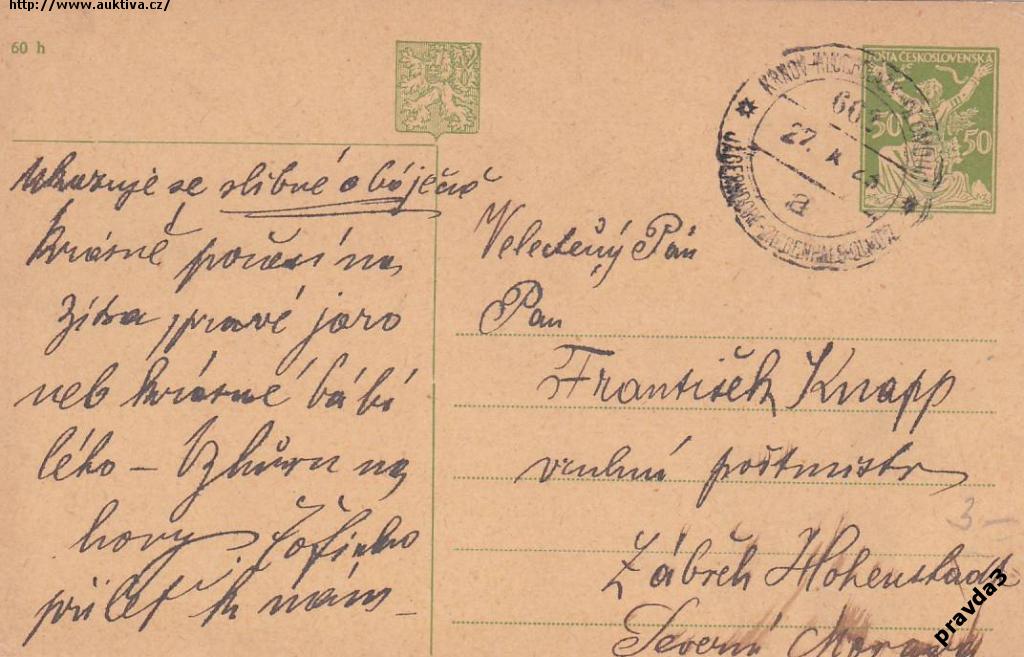 http://www.auktiva.cz/
60 h
POŠTA ČESKOSLOVENSKÁ
50 50
KRNOV
27. X 23
a
Ukazuje se slibně a báječně
krásné počasí na
zítra, pravé jaro
neb krásné babí
léto – Vzhůru na
hory
přileť k nám –
Velectěný Pán
Pan
František Knapp
vrchní poštmistr
Zábřeh Hohenstadt
Severní Morava
3–
pravda3